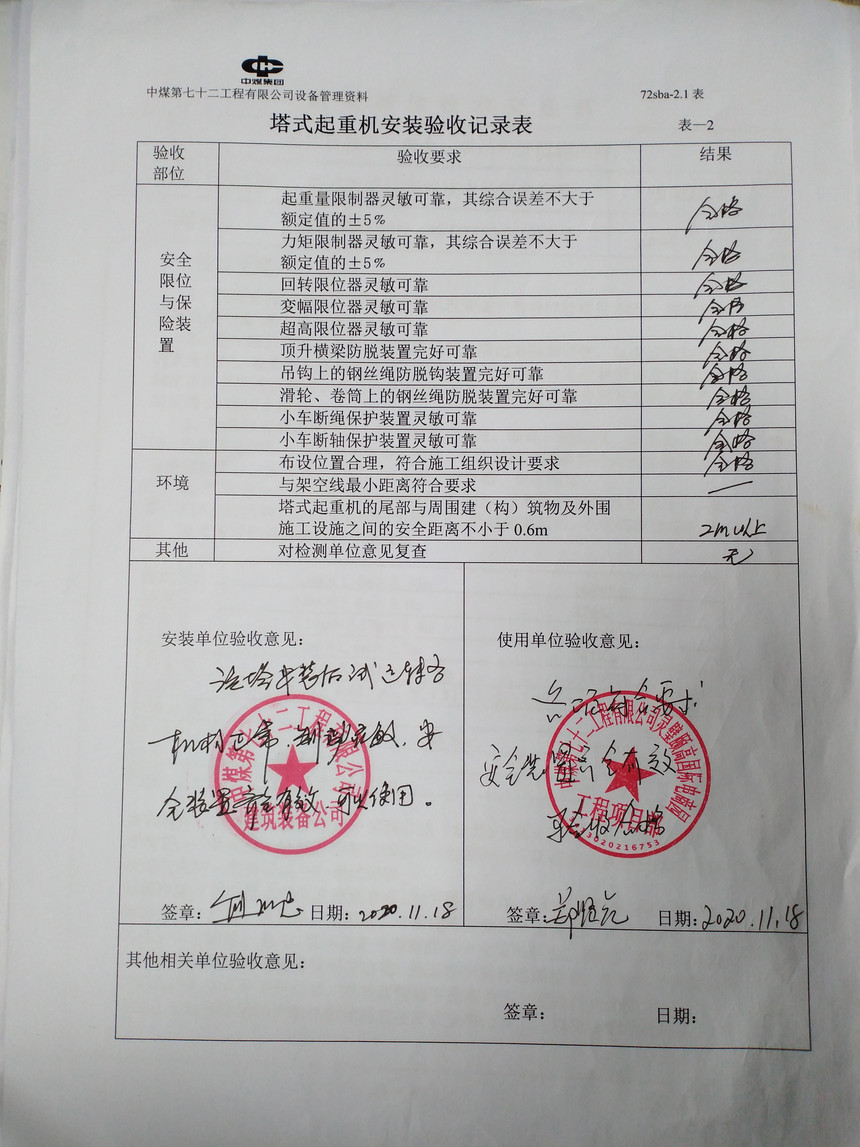 中煤集团
中煤第七十二工程有限公司设备管理资料 72sba-2.1 表
塔式起重机安装验收记录表 表—2
验收部位 验收要求 结果
安全限位与保险装置
起重量限制器灵敏可靠，其综合误差不大于
额定值的±5% 合格
力矩限制器灵敏可靠，其综合误差不大于
额定值的±5% 合格
回转限位器灵敏可靠 合格
变幅限位器灵敏可靠 合格
超高限位器灵敏可靠 合格
顶升横梁防脱装置完好可靠 合格
吊钩上的钢丝绳防脱钩装置完好可靠 合格
滑轮、卷筒上的钢丝绳防脱装置完好可靠 合格
小车断绳保护装置灵敏可靠 合格
小车断轴保护装置灵敏可靠 合格
环境
布设位置合理，符合施工组织设计要求 合格
与架空线最小距离符合要求 —
塔式起重机的尾部与周围建（构）筑物及外围
施工设施之间的安全距离不小于 0.6m 2m以上
其他 对检测单位意见复查 无
安装单位验收意见：
该塔安装后试运转各
机构正常，制动灵敏，安
全装置齐全有效，可以使用。
中煤第七十二工程有限公司
建筑装备公司
签章： 日期：2020.11.18
使用单位验收意见：
各项符合要求
安全装置齐全有效
验收合格
工程项目部
3020216753
签章： 日期：2020.11.18
其他相关单位验收意见：
签章： 日期：